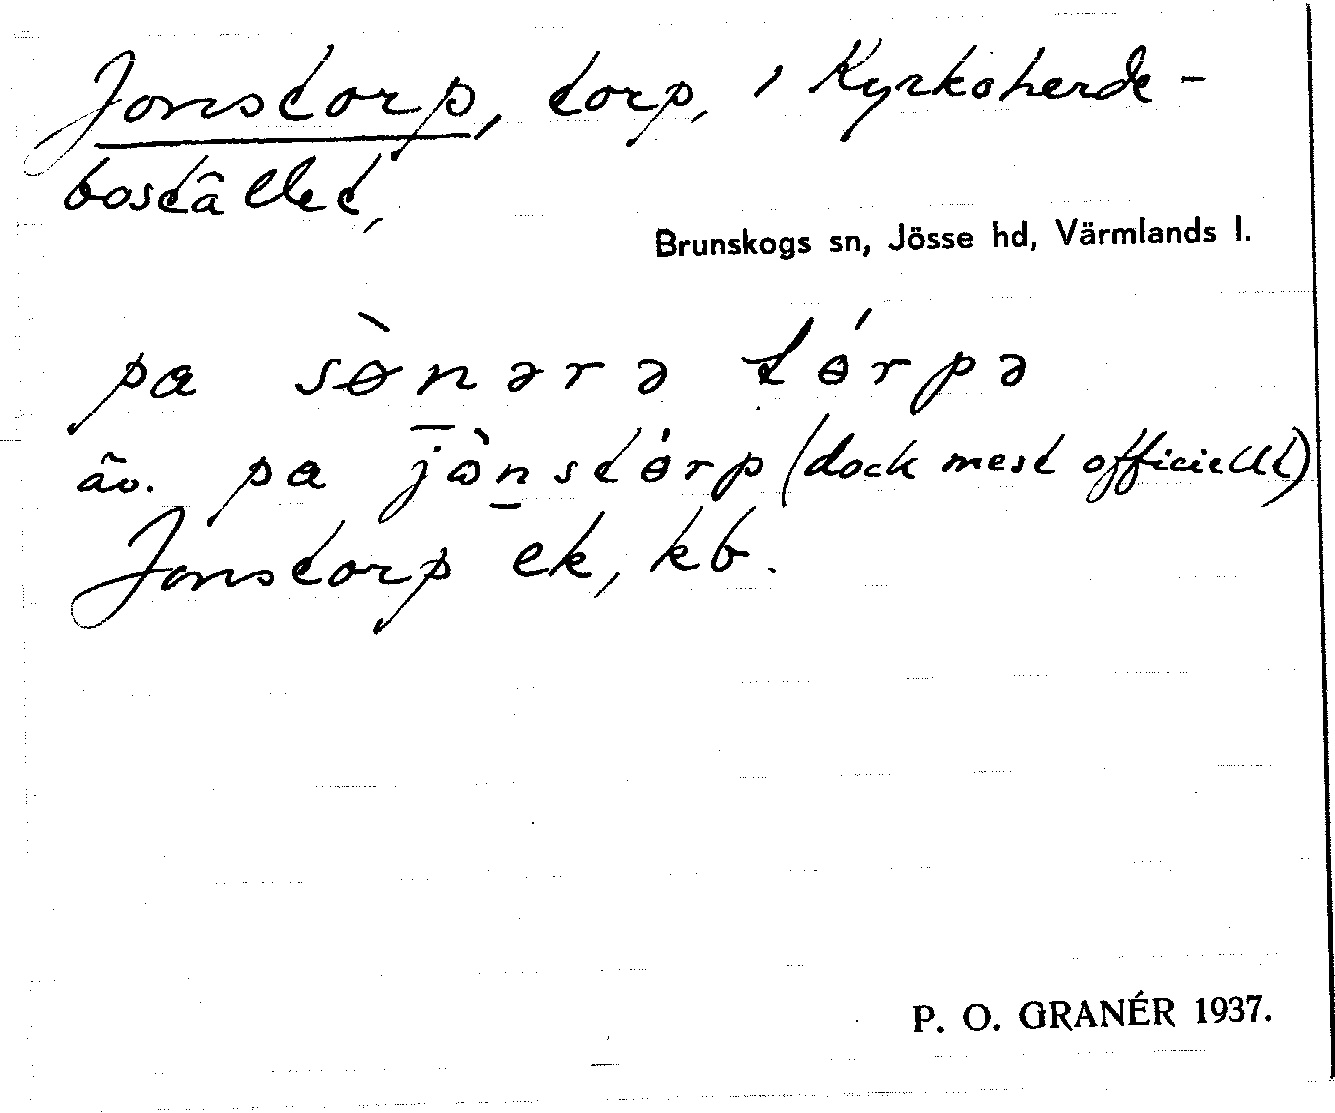 Jonstorp, torp, i Kyrkoherde-
bostället,
Brunskogs sn, Jösse hd, Värmlands l.
pa sɵ̀nərə tɵ́rpə
äv. pa jònstɵrp (dock mest officiellt)
Jonstorp ek, kb.
P. O. GRANÉR 1937.